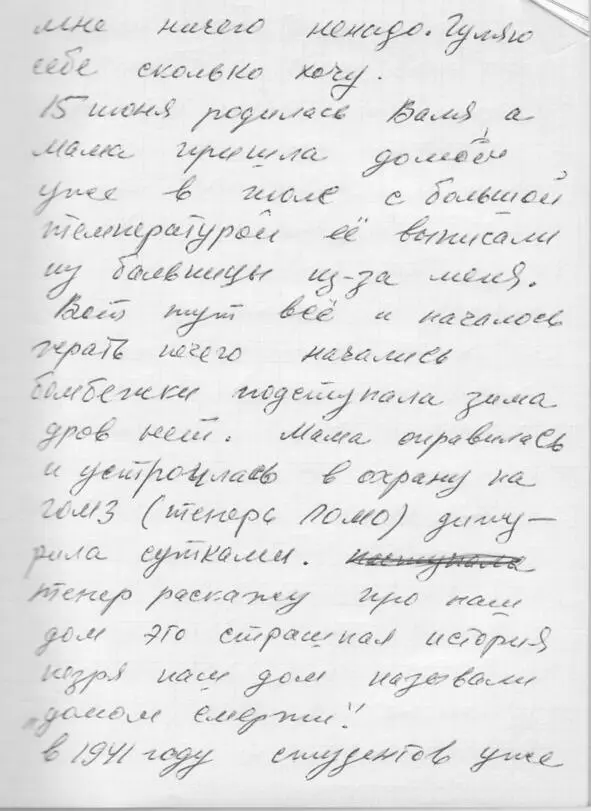 мне ничего ненадо. Гуляю
себе сколько хочу.
15 июня родилась Валя, а
мама пришла домой
уже в июле с большой
температурой её выписали
из больницы из-за меня.
Вот тут всё и началось
жрать нечего начались
бомбежки подступала зима
дров нет. Мама оправилась
и устроилась в охрану на
гомз (теперь Ломо) дижу-
рила сутками. наступала
тепер раскажу про наш
дом это страшная история
незря наш дом называли
„домом смерти"!
в 1941 году студентов уже